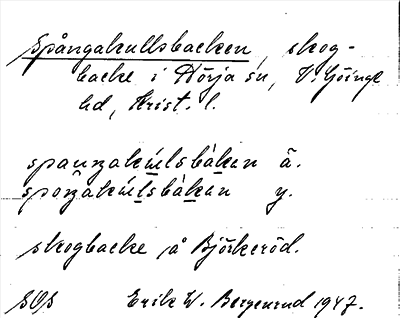 Spångakullsbacken, skog-
backe i Hörja sn, V. Göinge
hd, Krist. l.
spaŋgakúlsbàken ä.
spoŋakúlsbàkan y.
skogbacke å Björkeröd.
SOS Erik W. Bergenrud 1947.